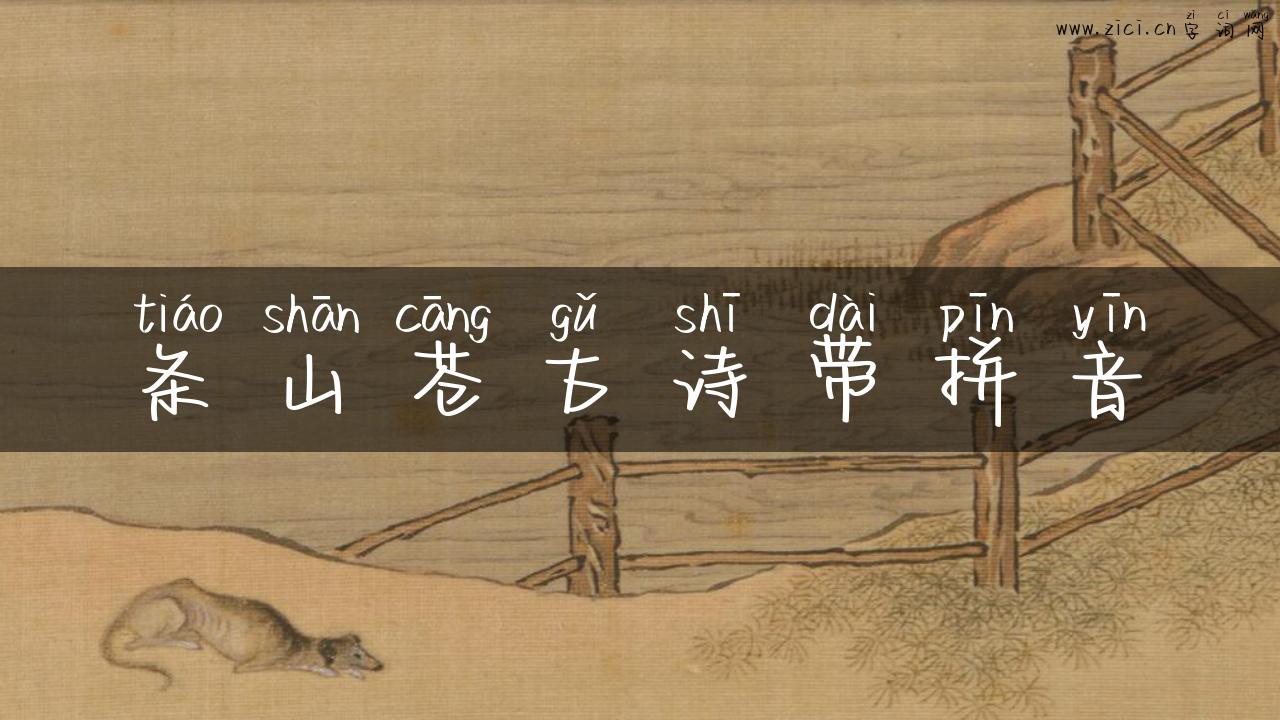 zì cí wǎng
www.zici.cn 字词网
tiáo shān cāng gǔ shī dài pīn yīn
条山苍古诗带拼音